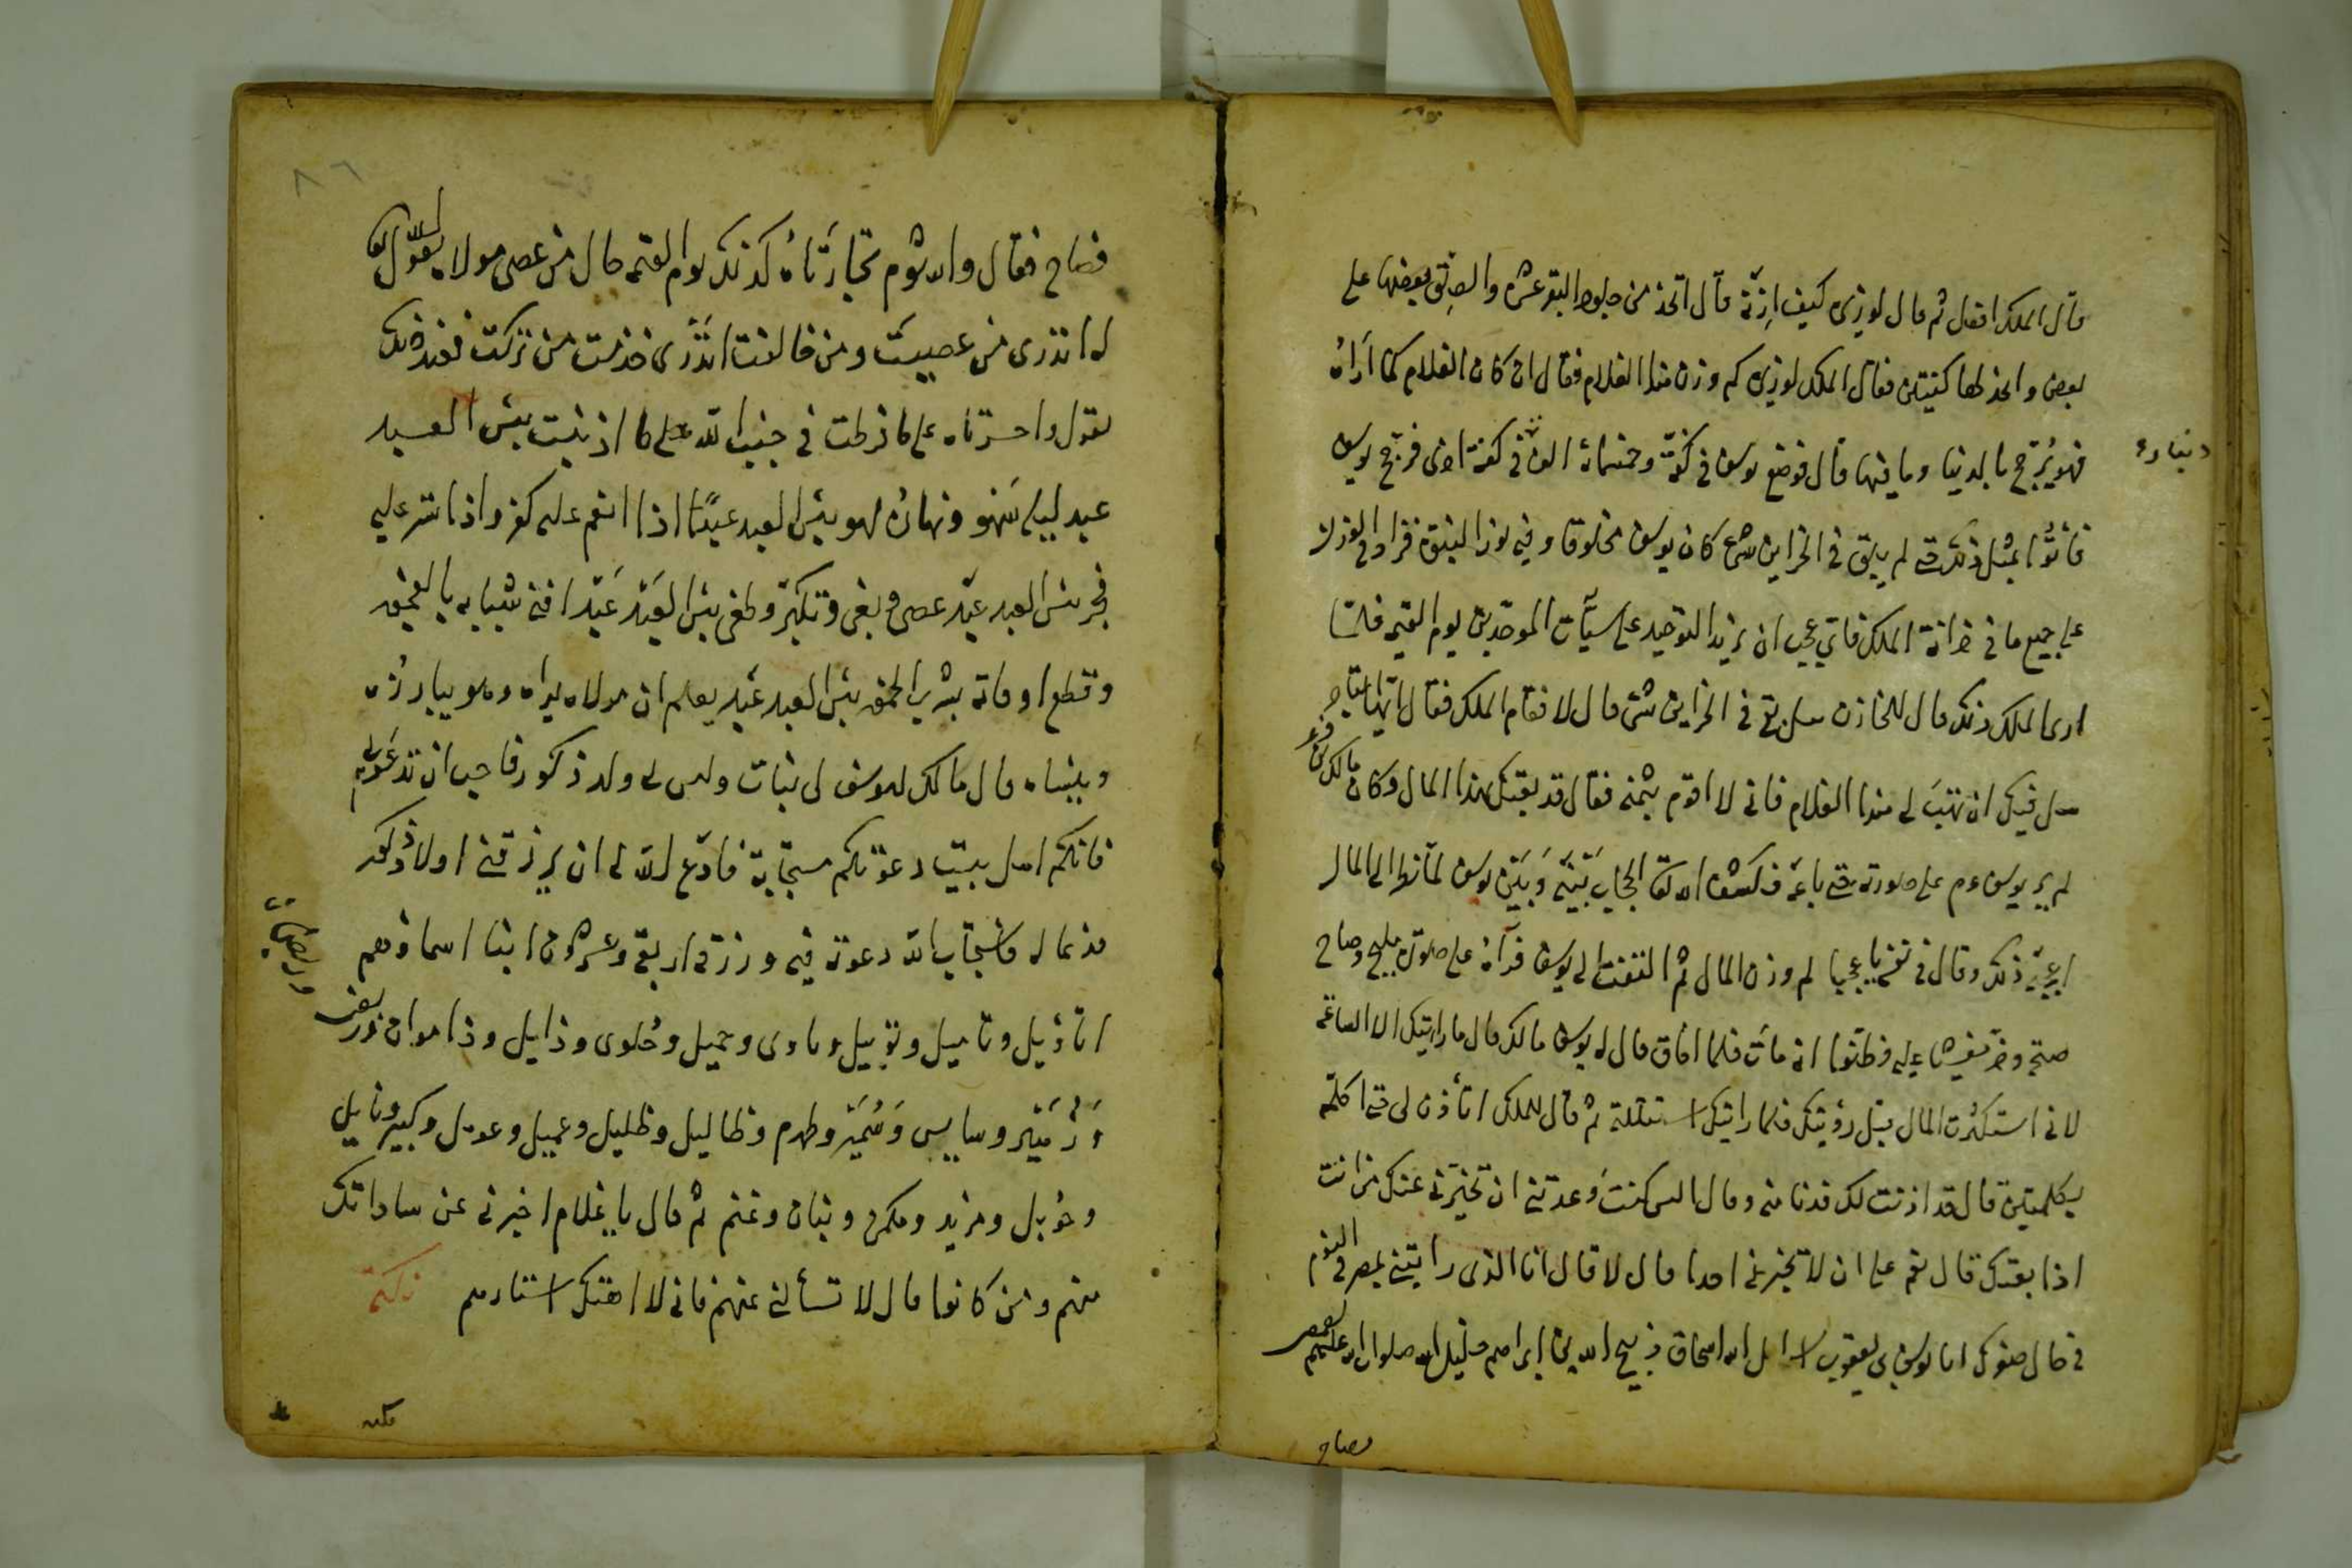 قال الملك افعل ثم قال لوزيره كيف ازنه قال اتخذ من جلود البقر عشرة والصق بعضها على
بعض واتخذ لها كفتين فقال الملك لوزيره كم وزن هذا الغلام فقال ان كان الغلام كما اراه
فهو يرجح بالدنيا وما فيها قال فوضع يوسف في كفة وخمسمائة الف في كفة اخرى فرجح يوسف
دينار
فأتوا بمثل ذلك حتى لم يبق في الخزاين شئ كان يوسف مخلوقا وفيه نور النبوة فزاد في الوزن
على جميع ما في خزانة الملك فاي عجب ان يزيد التوحيد على سيآت الموحدين يوم القيمة فلما
راى الملك ذلك قال للخازن هل بقي في الخزاين شئ قال لا فقام الملك فقال ايها التاجر
هل فيك ان تهب لي هذا الغلام فاني لا اقوم بثمنه فقال قد بعتك بهذا المال وكان مالك بن ذعر
لم ير يوسف عم على صورته حتى باعه فكشف الله تعالى الحجاب بينه وبين يوسف لما نظر الى المال
ذلك وقال في نفسه يا عجبا لم وزن المال ثم التفت الى يوسف فرآه على صورته مليح وصاح
صيحة وخر مغشيا عليه فظنوا انه مات فلما افاق قال له يوسف مالك قال ما رايتك الا الساعة
لاني استكثرت المال قبل رؤيتك فلما رايتك استقللته ثم قال للملك اتأذن لي حتى اكلمه
بكلمتين قال قد اذنت لك فدنا منه وقال اليس كنت وعدتني ان تخبرني عنك من انت
اذا بعتك قال نعم على ان لا تخبر بي احدا قال لا قال انا الذي رايتني بمصر في النوم
في حال صغرك انا يوسف بن يعقوب اسرائيل الله اسحاق ذبيح الله بن ابراهيم خليل الله صلوات الله عليهم
فصاح
٨٦
فصاح فقال واسوم تجارتاه كذلك يوم القيمة قال من عصى مولاه يقول الله تعالى
له اتدري من عصيت ومن خالفت اتدري خدمت من تركت فعند ذلك
يقول واحسرتاه على ما فرطت في جنب الله على ما اذنبت بئس العبد
عبد ليله سهو ونهاره لهو بئس العبد عبدا اذا انعم عليه كفر واذا ستر عليه
فجر بئس العبد عبد عصى وبغى وتكبر وطغى بئس العبد عبد افنى شبابه بالفحيق
وقطع اوقاته بشرب الخمر بئس العبد عبد يعلم ان مولاه يراه وهو يبارزه
وينساه قال مالك ليوسف لي بنات وليس لي ولد ذكور فاحب ان تدعو لي
فانكم اهل بيت دعوتكم مستجابة فادع الله لي ان يرزقني اولاد ذكور
فدعا له فاستجاب الله دعوته فيه ورزق اربعة وعشرون ابنا اسماؤهم
اتاؤيل وتاميل وتوبيل وماوى وجميل وحلوى وذايل وذا
وسايس وسمير وطهرم وظاليل وظليل وعميل وعويل وكبير ونايل
وخويل ومزيد ومكرم وبنان وغنم ثم قال يا غلام اخبرني عن ساداتك
منهم ومن كانوا قال لا تسألني عنهم فاني لا اهتك استارهم نكتة